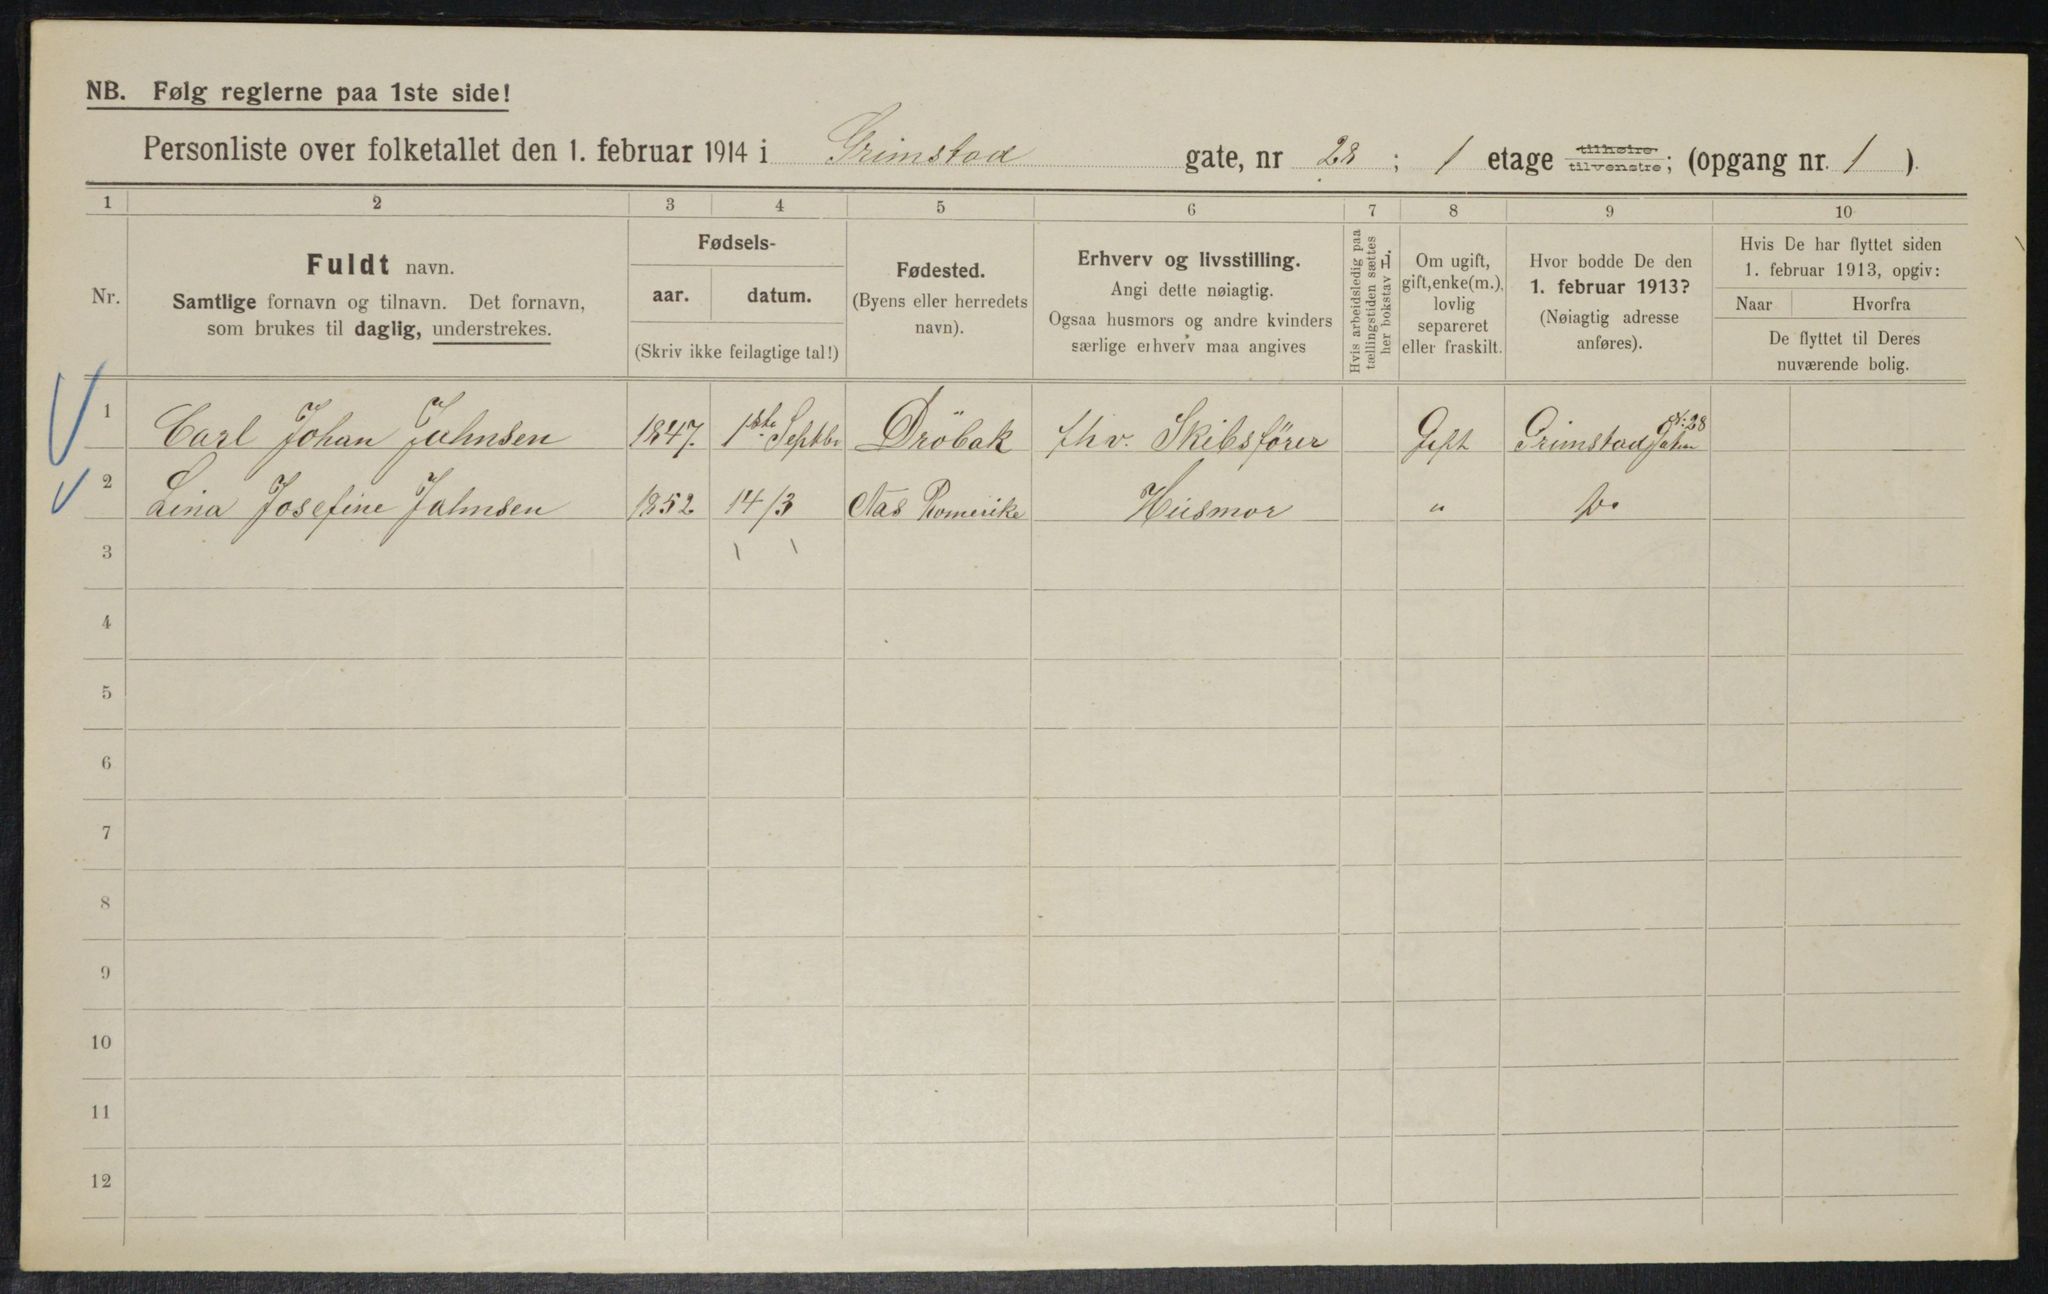 NB. Følg reglerne paa 1ste side!
Personliste over folketallet den 1. februar 1914 i Grimstad gate, nr 28 ; 1 etage tilhøire tilvenstre; (opgang nr. 1 ).
1 2 3 4 5 6 7 8 9 10
Nr.
Fuldt navn.
Samtlige fornavn og tilnavn. Det fornavn,
som brukes til daglig, understrekes.
Fødsels-
aar. datum.
(Skriv ikke feilagtige tal!)
Fødested.
(Byens eller herredets
navn).
Erhverv og livsstilling.
Angi dette nøiagtig.
Ogsaa husmors og andre kvinders
særlige erhverv maa angives
Hvis arbeidsledig paa
tællingstiden sættes
her bokstav L.
Om ugift,
gift, enke(m.),
lovlig
separeret
eller fraskilt.
Hvor bodde De den
1. februar 1913?
(Nøiagtig adresse
anføres).
Hvis De har flyttet siden
1. februar 1913, opgiv:
Naar Hvorfra
De flyttet til Deres
nuværende bolig.
1 Carl Johan Jahnsen 1847. 1ste Septbr Dröbak fhv. Skibsförer Gift Grimstad Gaten No 28
2 Lina Josefine Jahnsen 1852 14/3 Nas Romerike Husmor " Do
3
4
5
6
7
8
9
10
11
12